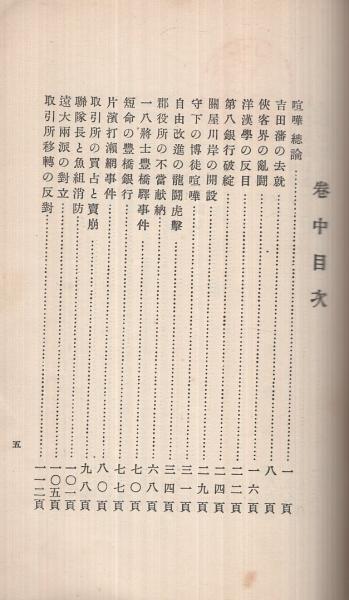 卷中目次
喧嘩總論……一頁
吉田藩の去就……八頁
俠客界の亂鬪……一六頁
洋漢學の反目……二二頁
第八銀行破綻……二四頁
關屋川岸の開設……二九頁
守下の博徒喧嘩……三一頁
自由改進の龍鬪虎擊……三四頁
郡役所の不當獻納……六八頁
一八將士豐橋驛事件……七〇頁
短命の豐橋銀行……七七頁
片濱打瀨網事件……八〇頁
取引所の買占と賣崩……九八頁
聯隊長と魚組消防……一〇一頁
遠大兩派の對立……一〇五頁
取引所移轉の反對……一一二頁
五